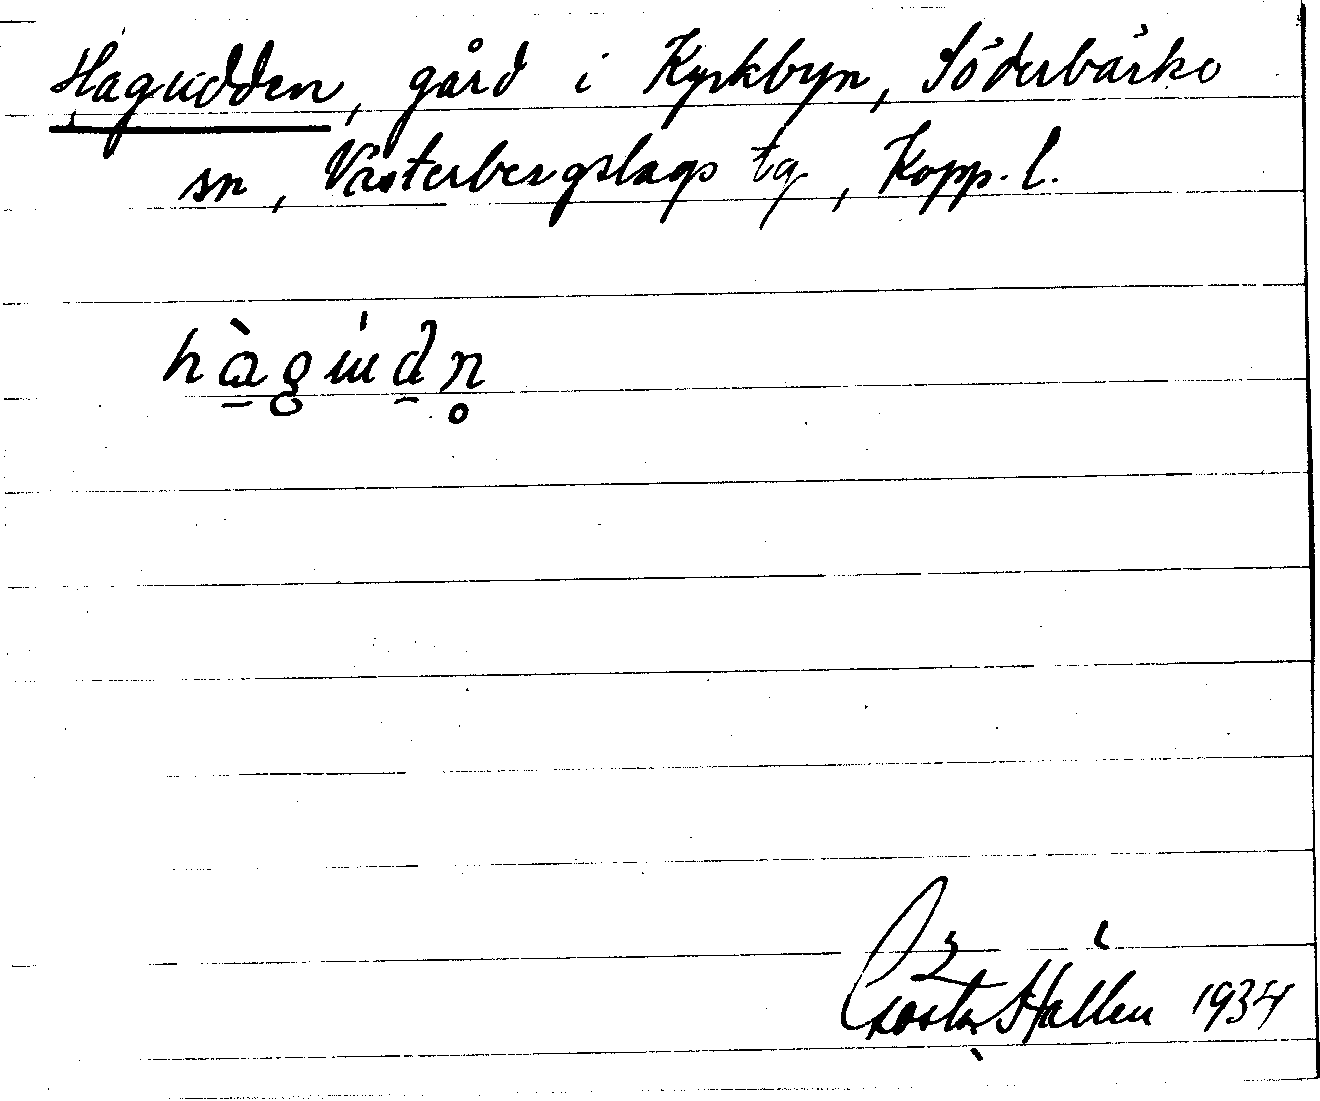 Hagudden, gård i Kyrkbyn, Söderbärke
sn, Västerbergslags tg, Kopp. l.
Gösta Hallén 1934